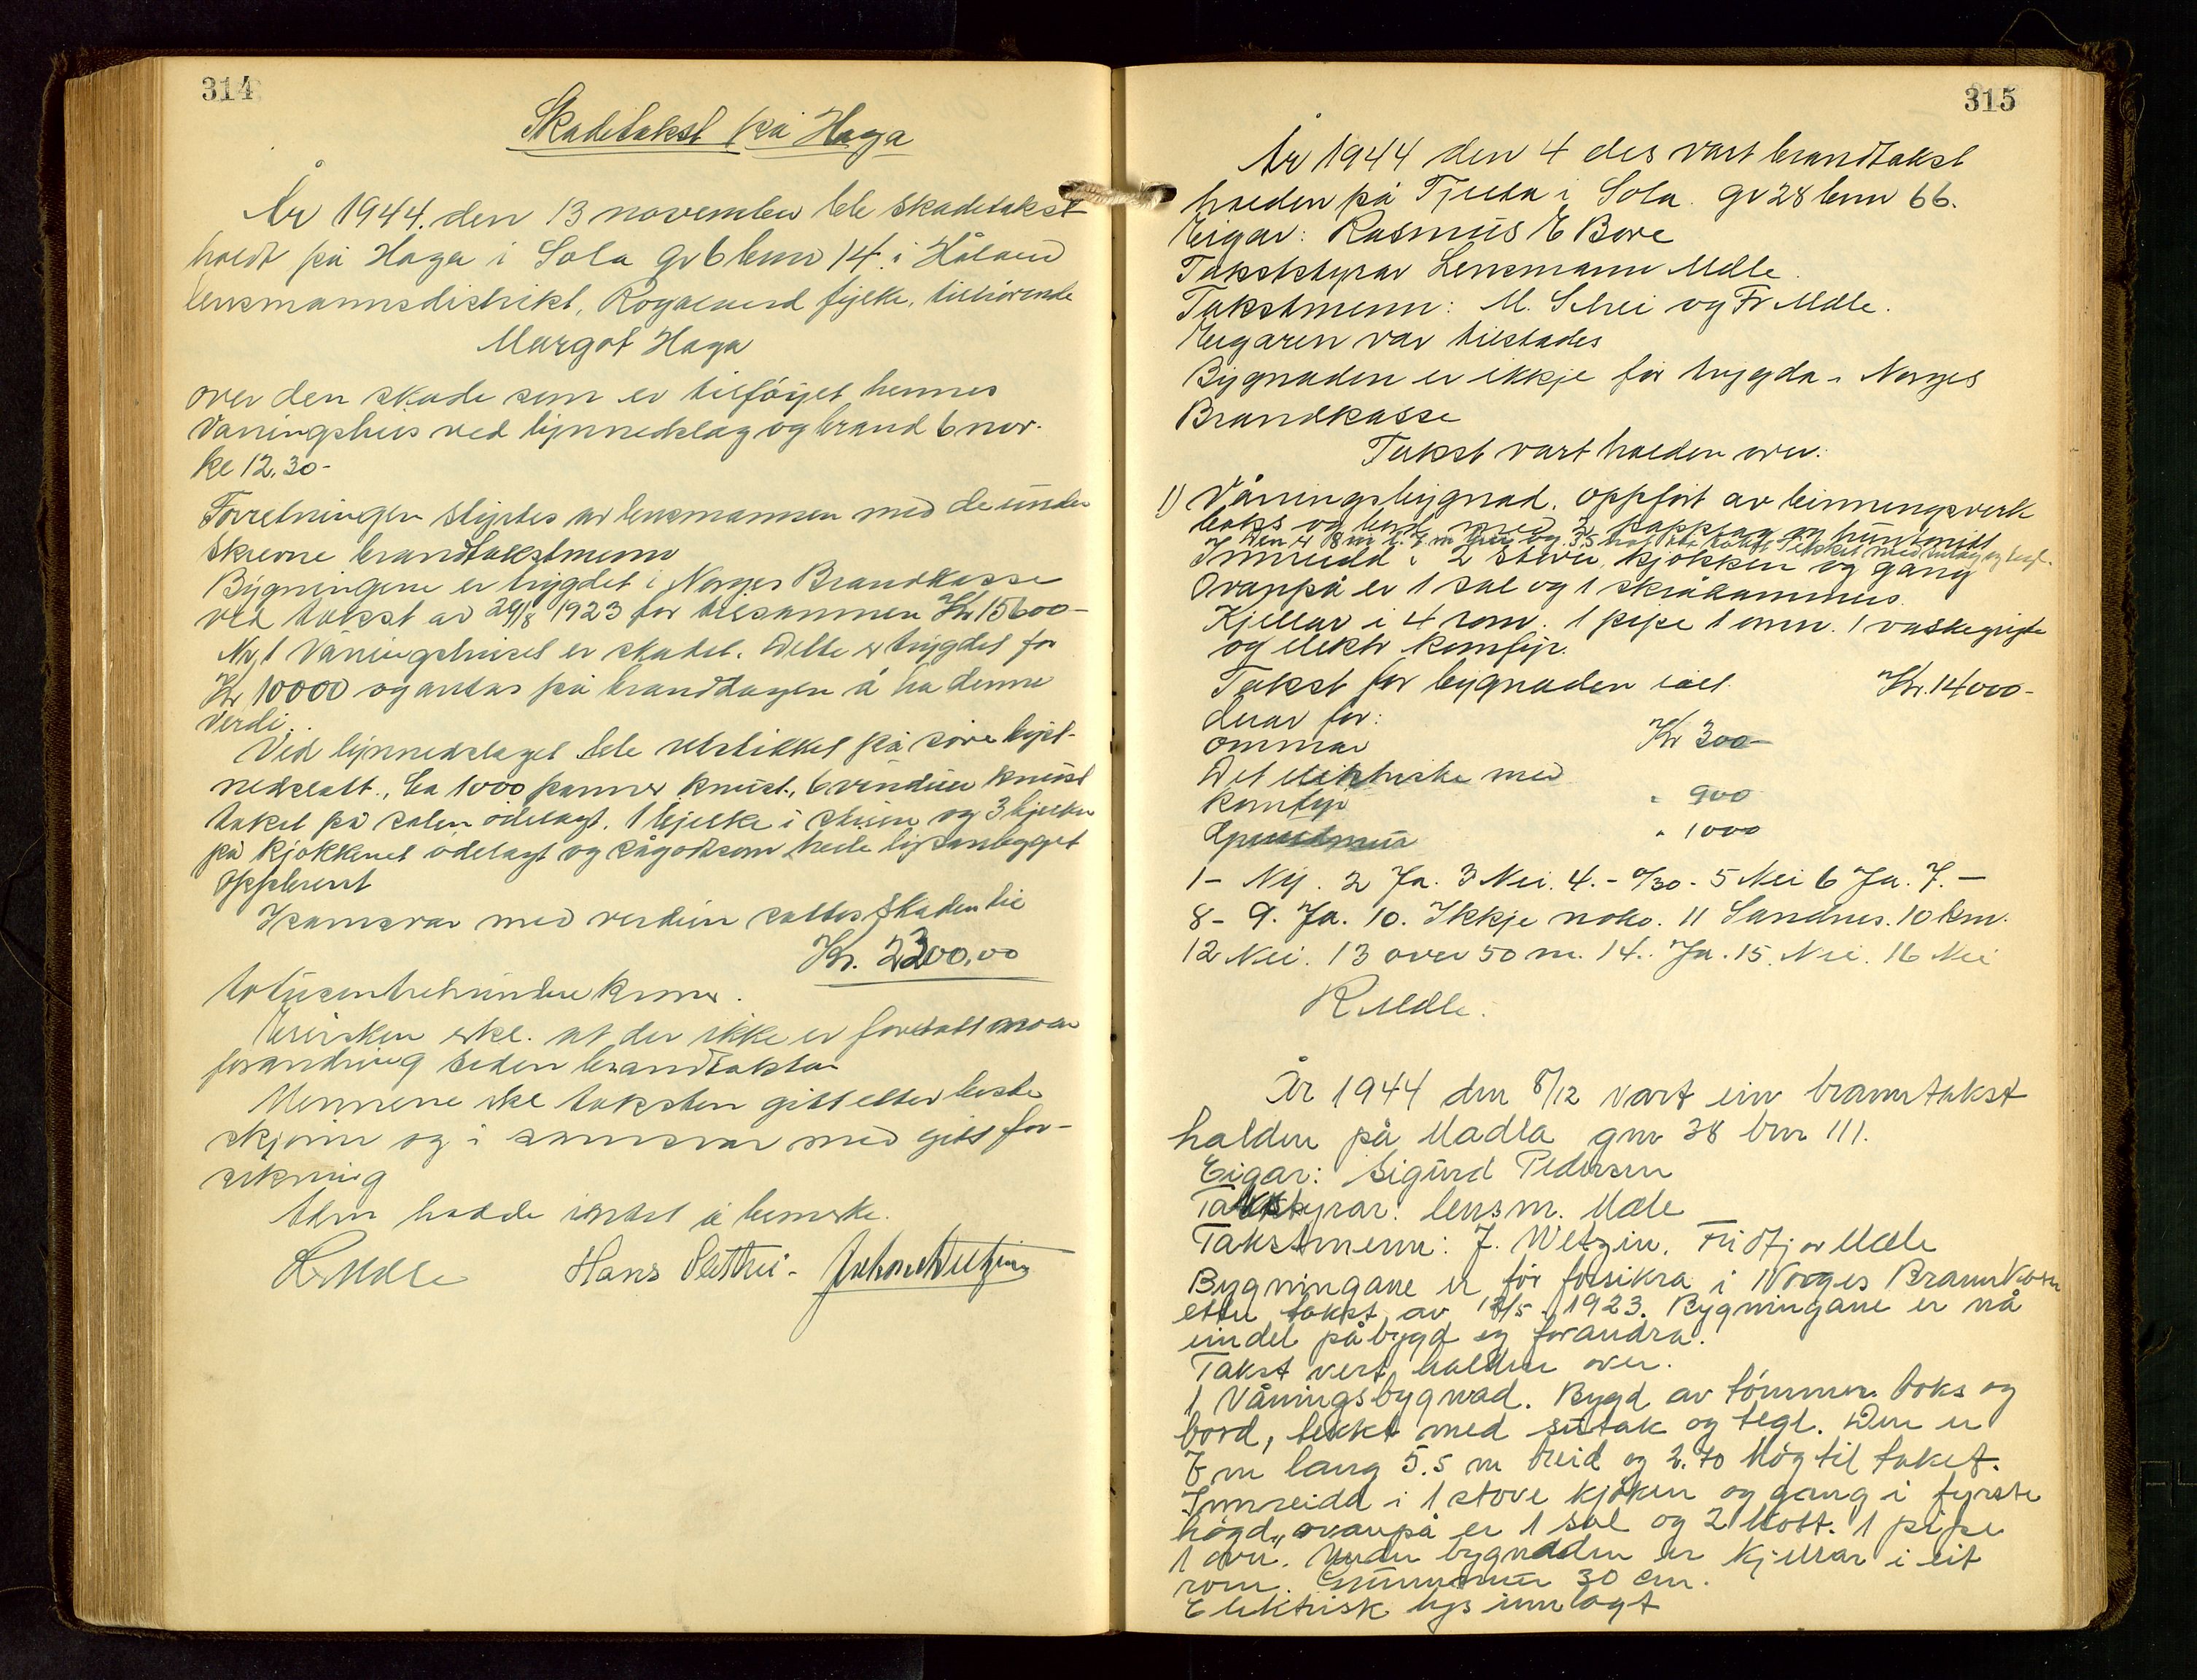 314
Skadetakst på Haga
År 1944. den 13 november ble skadetakst
holdt på Haga i Sola gr 6 bnr 14 i Håland
lensmannsdistrikt, Rogaland fylke, tilhörende
Margot Haga
over den skade som er tilföyet hennes
Vaningshus ved lynnedslag og brand 6 nov.
kl 12.30-
Forretningen styrtes av lensmannen med de under
skrevne brandtakstmenn
Bygningene er trygdet i Norges Brandkasse
ved takst av 29/8 1923 for tilsammen Kr 15600-
Nr 1 Våningshuset er skadet. Dette er trygdet for
Kr 10000 og antas på branddagen å ha denne
verdi.
Ved lynnedslaget ble utstikket på söre
nedslått., Ca 1000 panner knust, 6 vinduer knust
taket på salen ödelagt, 1 bjelke i stuen og 3 bjelker
på kjökkenet ödelagt og sågodtsom hele lysanlegget
oppbrent
I samsvar med verdien settes skaden til
Kr. 2300,00
totusentrehundre kroner.
at der ikke er foretatt noen
forandring siden brandtaksten
Mennene erkl taksten gitt etter beste
skjönn og i samsvar med gitt for-
sikring
Ellers hadde intet å bemerke.
R Mæle Hans Sletthei - Johan Wetzin
315
År 1944 den 4 des vart brandtakst
halden på Tjelta i Sola. gr 28 bnr 66.
Eigar: Rasmus E Bore
Takststyrar Lensmann Mæle.
Takstmenn: M. Skrei og Fr Mæle.
Eigaren var tilstades
Bygnaden er ikkje för trygda i Norges
Brandkasse
Takst vart halden over:
1) Våningsbygnad. oppfört av binningsverk
boks og bord med 3 papplag og
Den er 8 m l. 7 m brei og 3.5 hög tekket med sutag og tegl.
Innreidd i 2 stover, kjökken og gang
Ovanpå er 1 sal og 1 skråkammers
Kjellar i 4 rom. 1 pipe 1 omn. 1 vaskegryte
og elektr komfyr.
Takst for bygnaden ialt Kr. 14000-
derav for:
ommar Kr 300-
Det elektriske med
komfyr " 900
Grunnmur " 1000
1- Ny. 2 Ja. 3 Nei. 4.- 0/30 - 5 Nei 6 Ja. 7. -
8- 9. Ja. 10. Ikkje noko. 11 Sandnes. 10 km.
12 Nei. 13 over 50 m. 14. Ja. 15. Nei. 16 Nei
R Mæle.
År 1944 den 8/12 vart ein branntakst
halden på Madla gnr 38 bnr 111.
Eigar: Sigurd Pedersen
Takstyrar: lensm. Mæle
Takstmenn: J. Wetzin, Fridtjov Mæle
Bygningane er för försikra i Norges Brannkasse
etter takst av 12/5 1923. Bygningane er nå
eindel påbygd og forandra.
Takst vert halden over.
1 Våningsbygnad. Bygd av tömmer boks og
bord, tekkt med sutak og tegl. Den er
7 m lang 5.5 m breid og 2.70 hög til taket.
Innreidd i 1 stove kjöken og gang i fyrste
högd, ovanpå er 1 sal og 2 kott. 1 pipe
1 ovn. Under bygnaden er kjellar i eit
rom. Grunnmur 30 cm.
Elektrisk lys innlagt